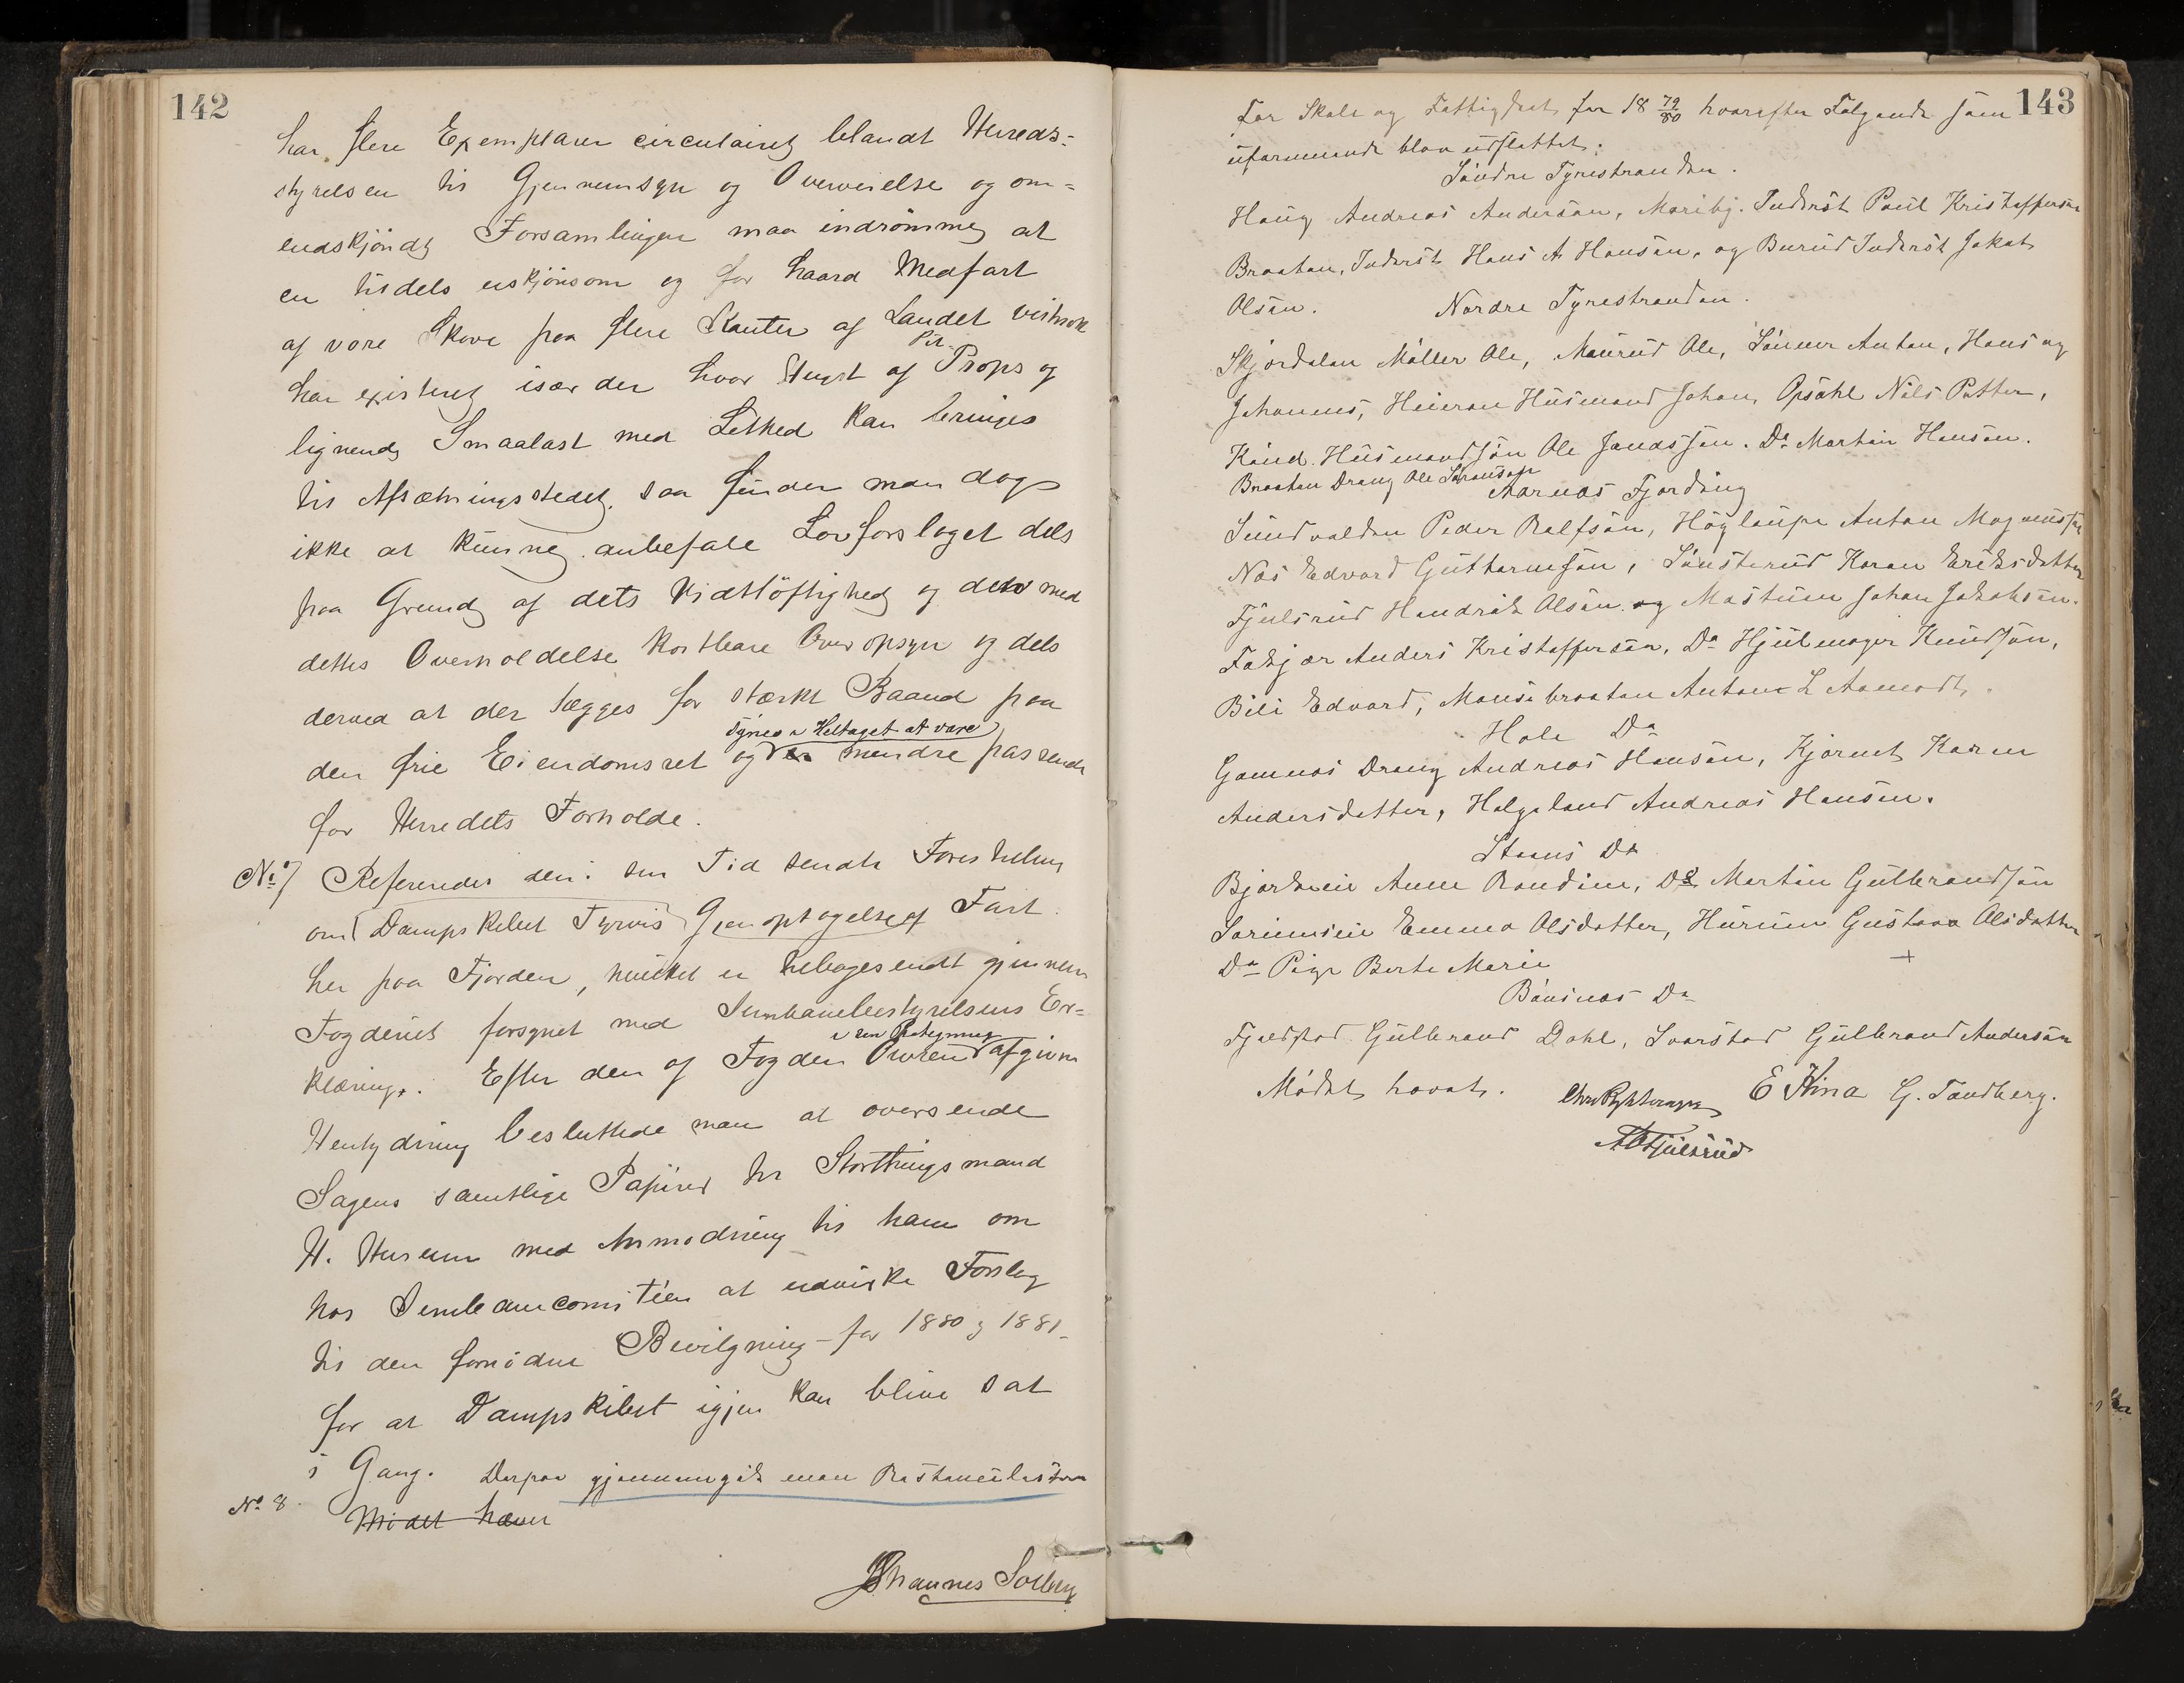 142
har flere Exemplarer circulairet blandt Herreds-
styrelsen til Gjennemsyn og Overveielse og om-
endskjöndt Forsamlingen maa indrömme at
en tildels uskjönsom og for haard Medfart
af vore Skove paa flere Kanter af Landet vistnok
har existeret især der hvor Hugst af Pit-Props og
lignende Smaalast med Lethed kan bringes
til Afsætningsstedet, saa finder man dog
ikke at kunne anbefale Lovforslaget dels
paa Grund af dets Vidtlöftighed og det med
dettes Overholdelse kostbare Overopsyn og dels
derved at der lægges for stærkt Baand paa
den frie Eiendomsret og synes i Heltaget at være mindre passende
for Herredets Forholde.
No 7 Refereredes den i sin Tid sendte Forestilling
om Dampskibet Tyrvis Gjenoptagelse af Fart
her paa Fjorden, hvilket er tilbagesendt gjennem
Fogderiet forsynet med Jernbanebestyrelsens Er-
klæring. Efter den af Fogden i sin Paategning afgivne
Hentydning besluttede man at oversende
Sagens samtlige Papirer til Storthingsmand
H. Hurum med Anmodning til ham om
hos Jernbanecomitéen at udvirke Forslag
til den fornödne Bevilgning for 1880 og 1881
for at Dampskibet igjen kan blive sat
i Gang. Derpaa gjennemgik man Restancelisten
No 8. Mödet hæver
Johannes Solberg
143
For Skole og Fattigdist for 18 79/80 hvorefter Fölgende som
uformuende blev udslettet:
Söndre Tyrestranden.
Haug Andreas Andersön, Moribj. Inderst Paul Kristoffersön
Braaten, Inderst Hans A Hansön, og Burud Inderst Jakob
Olsön. Nordre Tyrestranden.
Skjördalen Möller Ole, Maurud Ole, Sönner Anton, Hans og
Johannes, Heieren Husmand Johan, Opsahl Nils Petter,
Husmandsön Ole Jonassön. Do Martin Hansön.
Braaten Dreng Ole Johansön Aarnæs Fjerding
Sundvolden Peder Rolfsön, Höglaupe Anton Magnussön
Næs Edvard Guttormsön, Sönsterud Karen Eriksdatter
Fjulsrud Hendrik Olsön og Mastum Johan Jakobsön.
Fokjær Anders Kristoffersön, Do Hjulmager Knudsön,
Bili Edvard, Monsebraaten Anton L Aamodt.
Hole Do
Gomnæs Dreng Andreas Hansön, Kjörnet Karen
Andersdatter, Helgeland Andreas Hansen.
Steens Do
Bjerkeeie Anne Randine, Do Martin Gulbrandsön
Emma Olsdatter, Hurum Gustava Olsdatter
Do Pige Berte Marie
Bönsnæs Do
Gulbrand Dahl, Svarstad Gulbrand Andersön
Mödet hævet. E Hina G. Tandberg.
A Fjulsrud